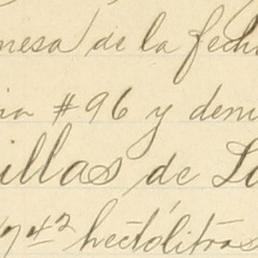 mesa de la fech
ia #96 y demi
illas de La
742 hectólitros